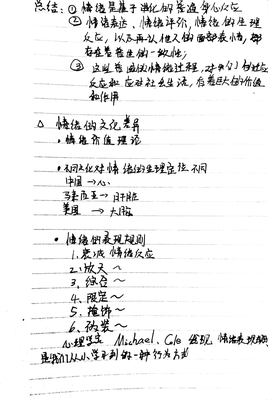 总结：① 情绪是基于进化的普遍身心反应
② 情绪表达、情绪评价，情绪的生理
反应，以及再认他人的面部表情，都
存在着普遍的一致性；
③ 这些普遍的情绪过程，对于人们的社会
反应和应对社会生活，有着巨大的价值
和作用
△ 情绪的文化差异
· 情绪价值理论
· 不同文化对情绪的生理定位不同
中国 → 心
马来西亚 → 肝脏
美国 → 大脑
· 情绪的表现规则
1. 衰减情绪反应
2. 放大～
3. 综合～
4. 限定～
5. 掩饰～
6. 伪装～
心理学家 Michael. Cole 发现，情绪表现规则
是我们从小学到的一种行为方式